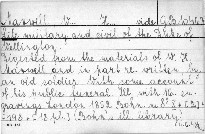 Maxwell W. H. vide G.B.
life military and civil of the Duke of
Wellington.
Digested from the materials of W. H.
Maxwell and in part re-written by
an old soldier. With some account
of his public funeral. Ill. with
engravings London 1852 Bohn
(Bohn's ill. library)